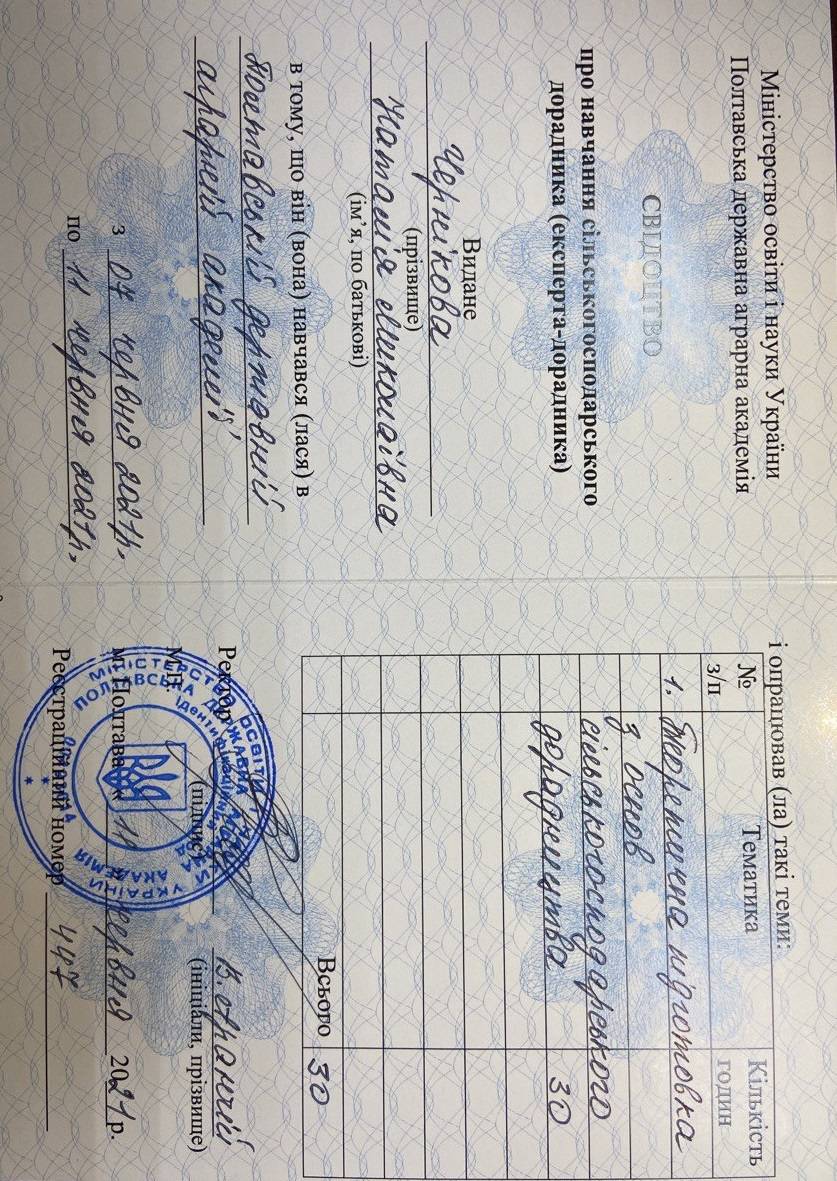 Міністерство освіти і науки України
Полтавська державна аграрна академія
СВІДОЦТВО
про навчання сільськогосподарського
дорадника (експерта-дорадника)
Видане
Чернікова
(прізвище)
Наталія Миколаївна
(ім’я, по батькові)
в тому, що він (вона) навчався (лася) в
Полтавській державній
аграрній академії
з 07 червня 2021р.
по 11 червня 2021р.
і опрацював (ла) такі теми:
№ з/п Тематика Кількість годин
1. Теоретична підготовка
з основ
сільськогосподарського
дорадництва 30
Всього 30
Ректор
(підпис) (ініціали, прізвище)
М.П.
м. Полтава « 11 червня 2021 р.
Реєстраційний номер 447
МІНІСТЕРСТВО ОСВІТИ І НАУКИ УКРАЇНИ
ПОЛТАВСЬКА ДЕРЖАВНА АГРАРНА АКАДЕМІЯ